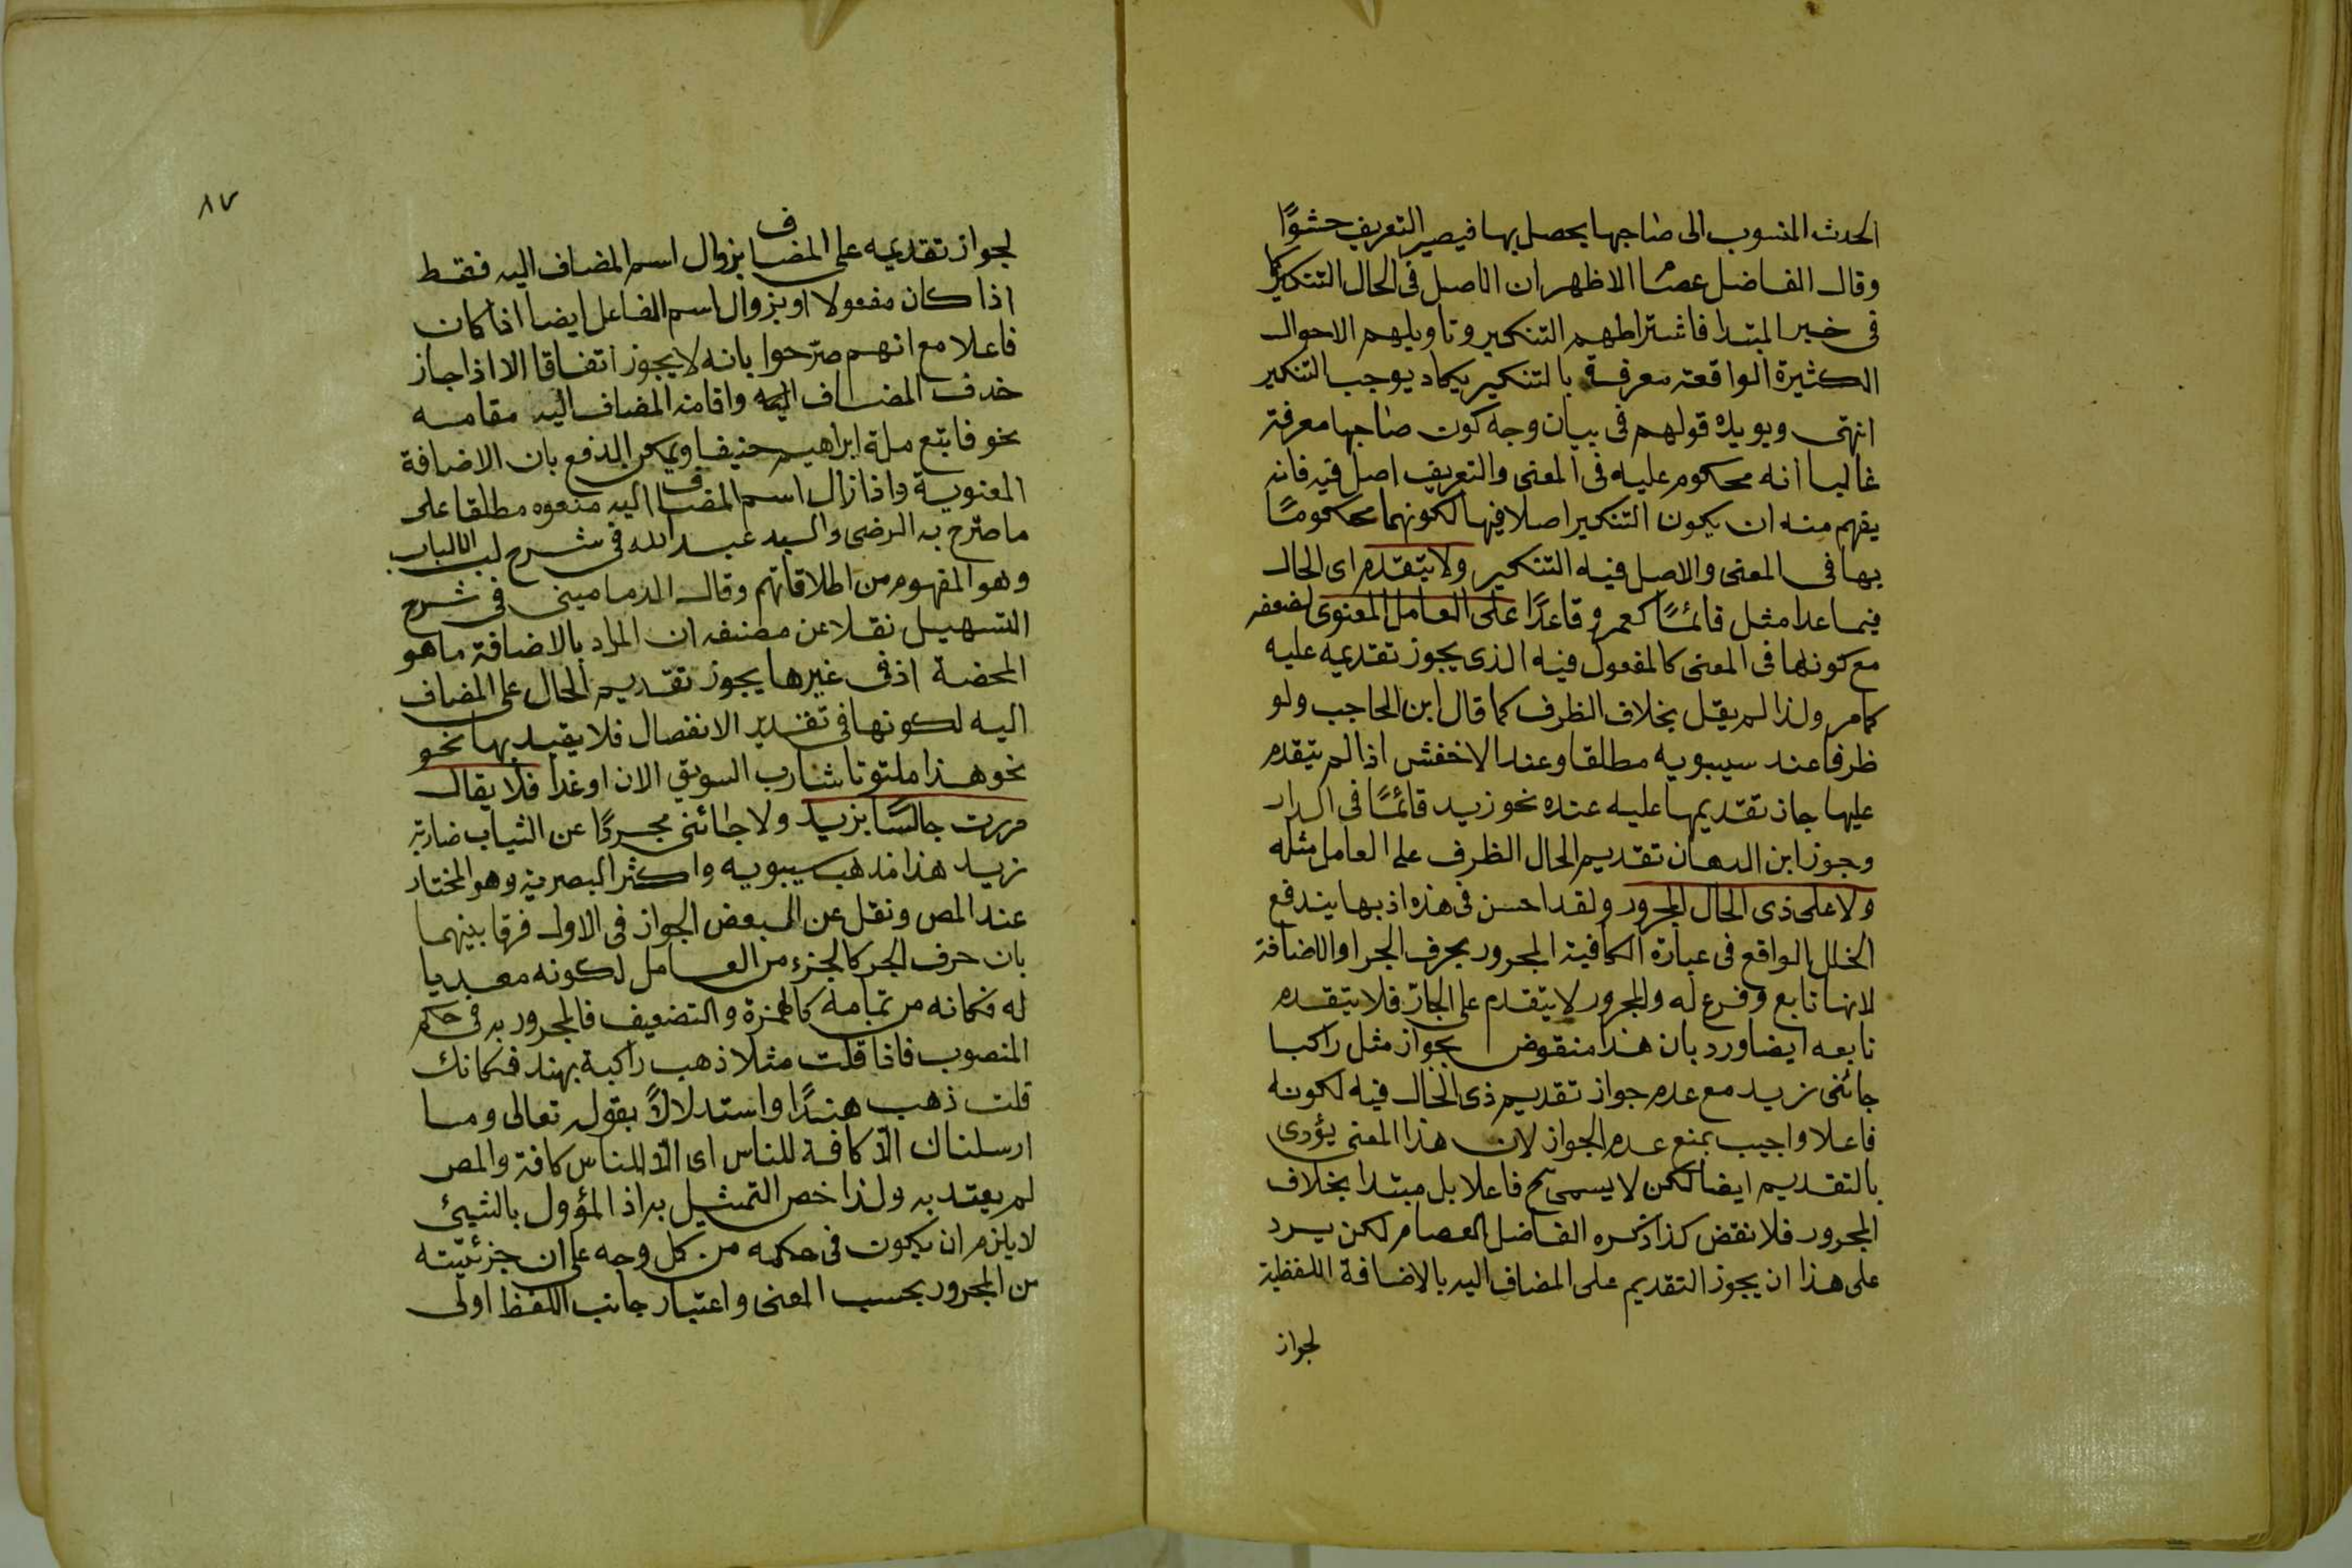 الحدث المنسوب الى صاحبها يحصل بها فيصير التعريف حشوًا
وقال الفاضل عصام الاظهر ان الاصل فى الحال التنكير كما
فى خبر المبتدا فاشتراطهم التنكير وتاويلهم الاحوال
الكثيرة الواقعة معرفة بالتنكير يكاد يوجب التنكير
انتهى ويويده قولهم فى بيان وجه كون صاحبها معرفة
غالبا انه محكوم عليه فى المعنى والتعريف اصل فيه فانه
يفهم منه ان يكون التنكير اصلا فيها لكونهما محكومًا
بها فى المعنى والاصل فيه التنكير ولا يتقدم اى الحال
فيما عدا مثل قائمًا كعمرو قاعدًا على العامل المعنوى لضعفه
مع كونها فى المعنى كالمفعول فيه الذى يجوز تقديمه عليه
كما مر ولذا لم يقل بخلاف الظرف كما قال ابن الحاجب ولو
ظرفا عند سيبويه مطلقا وعند الاخفش اذا لم يتقدم
عليها جاز تقديمها عليه عنده نحو زيد قائمًا فى الدار
وجوز ابن الدهان تقديم الحال الظرف على العامل مثله
ولا على ذى الحال المجرور ولقد احسن فى هذه اذ بها يندفع
الخلل الواقع فى عبارة الكافية المجرور بحرف الجر او الاضافة
لانها تابع وفرع له والمجرور لا يتقدم على الجارّ فلا يتقدم
تابعه ايضا ورد بان هذا منقوض بجواز مثل راكبا
جائنى زيد مع عدم جواز تقديم ذى الحال فيه لكونه
فاعلا واجيب بمنع عدم الجواز لان هذا المعنى يؤدى
بالتقديم ايضا لكن لا يسمى ح فاعلا بل مبتدا بخلاف
المجرور فلا نقض كذا ذكره الفاضل العصام لكن يرد
على هذا ان يجوز التقديم على المضاف اليه بالاضافة اللفظية
لجواز
٨٧
لجواز تقديمه على المضاف بزوال اسم المضاف اليه فقط
اذا كان مفعولا او بزوال اسم الفاعل ايضا اذا كان
فاعلا مع انهم صرّحوا بانه لا يجوز اتفاقا الا اذا جاز
حذف المضاف اليه واقامة المضاف اليه مقامه
نحو فاتبع ملة ابراهيم حنيفا ويمكن الدفع بان الاضافة
المعنوية واذا زال اسم المضاف اليه منعوه مطلقا على
ما صرّح به الرضى والسيد عبد الله فى شرح لب الالباب
وهو المفهوم من اطلاقاتهم وقال الدمامينى فى شرح
التسهيل نقلا عن مصنفه ان المراد بالاضافة ما هو
المحضة اذ فى غيرها يجوز تقديم الحال على المضاف
اليه لكونها فى تقدير الانفصال فلا يقيد بها نحو
نحو هذا ملتوتا شارب السويق الان او غدا فلا يقال
مررت جالسًا بزيد ولا جائنى مجردًا عن الثياب ضاربة
زيد هذا مذهب سيبويه واكثر البصرية وهو المختار
عند المص ونقل عن البعض الجواز فى الاول فرقا بينهما
بان حرف الجر كالجزء من العامل لكونه معديا
له فكانه من تمامه كالهمزة والتضعيف فالمجرور به فى حكم
المنصوب فاذا قلت مثلا ذهب راكبة بهند فكانك
قلت ذهب هندًا واستدلالاً بقوله تعالى وما
ارسلناك الّا كافة للناس اى الّا للناس كافة والمص
لم يعتد به ولذا خص التمثيل به اذ المؤول بالشيئ
لا يلزم ان يكون فى حكمه من كل وجه على ان جزئيّته
من المجرور بحسب المعنى واعتبار جانب اللفظ اولى